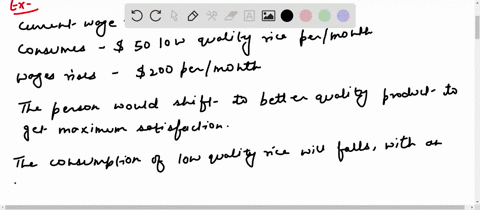 Ex-
Current wage -
Consumes - $ 50 low quality rice per/month
wages rises - $200 per/month
The person would shift to better quality product to
get maximum satisfaction.
The consumption of low quality rice will falls, with an